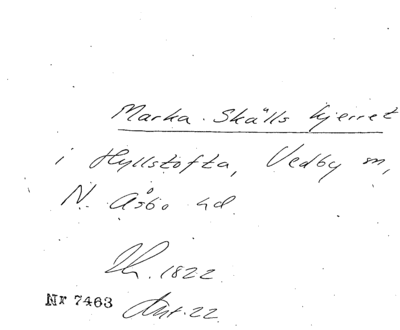 Marka-Skälls kjerret
i Hyllstofta, Vedby sn,
N. Åsbo hd.
1822
Nr 7463
Ant. 22.